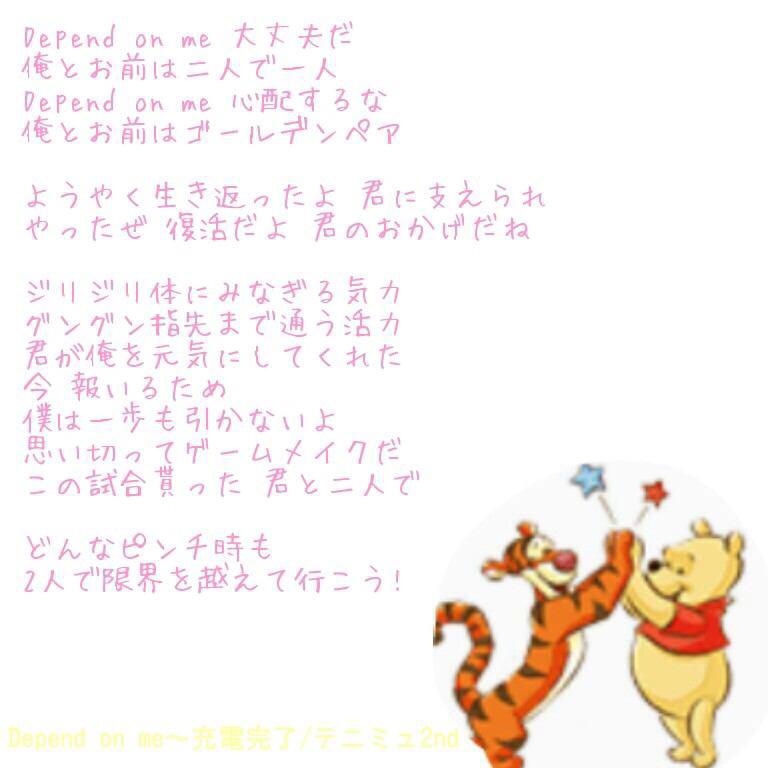 Depend on me 大丈夫だ
俺とお前は二人で一人
Depend on me 心配するな
俺とお前はゴールデンペア
ようやく生き返ったよ 君に支えられ
やったぜ 復活だよ 君のおかげだね
ジリジリ体にみなぎる気力
グングン指先まで通う活力
君が俺を元気にしてくれた
今 報いるため
僕は一歩も引かないよ
思い切ってゲームメイクだ
この試合貰った 君と二人で
どんなピンチ時も
2人で限界を越えて行こう!
Depend on me〜充電完了/テニミュ2nd